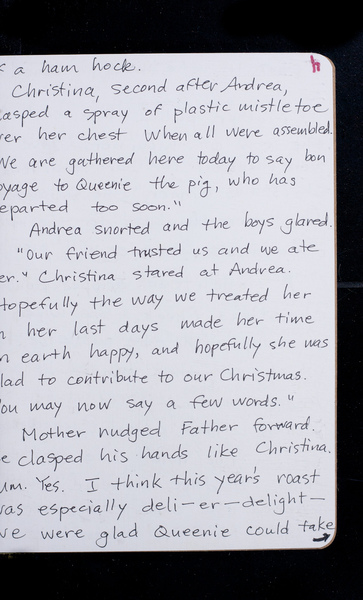 h
a ham hock.
Christina, second after Andrea,
asped a spray of plastic mistletoe
er her chest When all were assembled.
We are gathered here today to say bon
oyage to Queenie the pig, who has
eparted too soon."
Andrea snorted and the boys glared.
"Our friend trusted us and we ate
er." Christina stared at Andrea.
Hopefully the way we treated her
n her last days made her time
n earth happy, and hopefully she was
lad to contribute to our Christmas.
You may now say a few words."
Mother nudged Father forward.
e clasped his hands like Christina.
um. Yes. I think this year's roast
was especially deli—er—delight—
we were glad Queenie could take